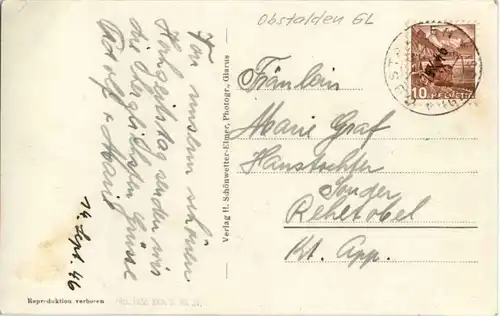 Obstalden GL
Von unserm schönen
Hochzeitstag senden wir
die herzlichsten Grüsse
Adolf & Marie
14. Sept. 46
Verlag H. Schönwetter-Elmer, Photogr., Glarus
10 HELVETIA
Fräulein
Marie Graf
Haustochter
Sonder
Rehetobel
Kt. App.
Reproduktion verboten